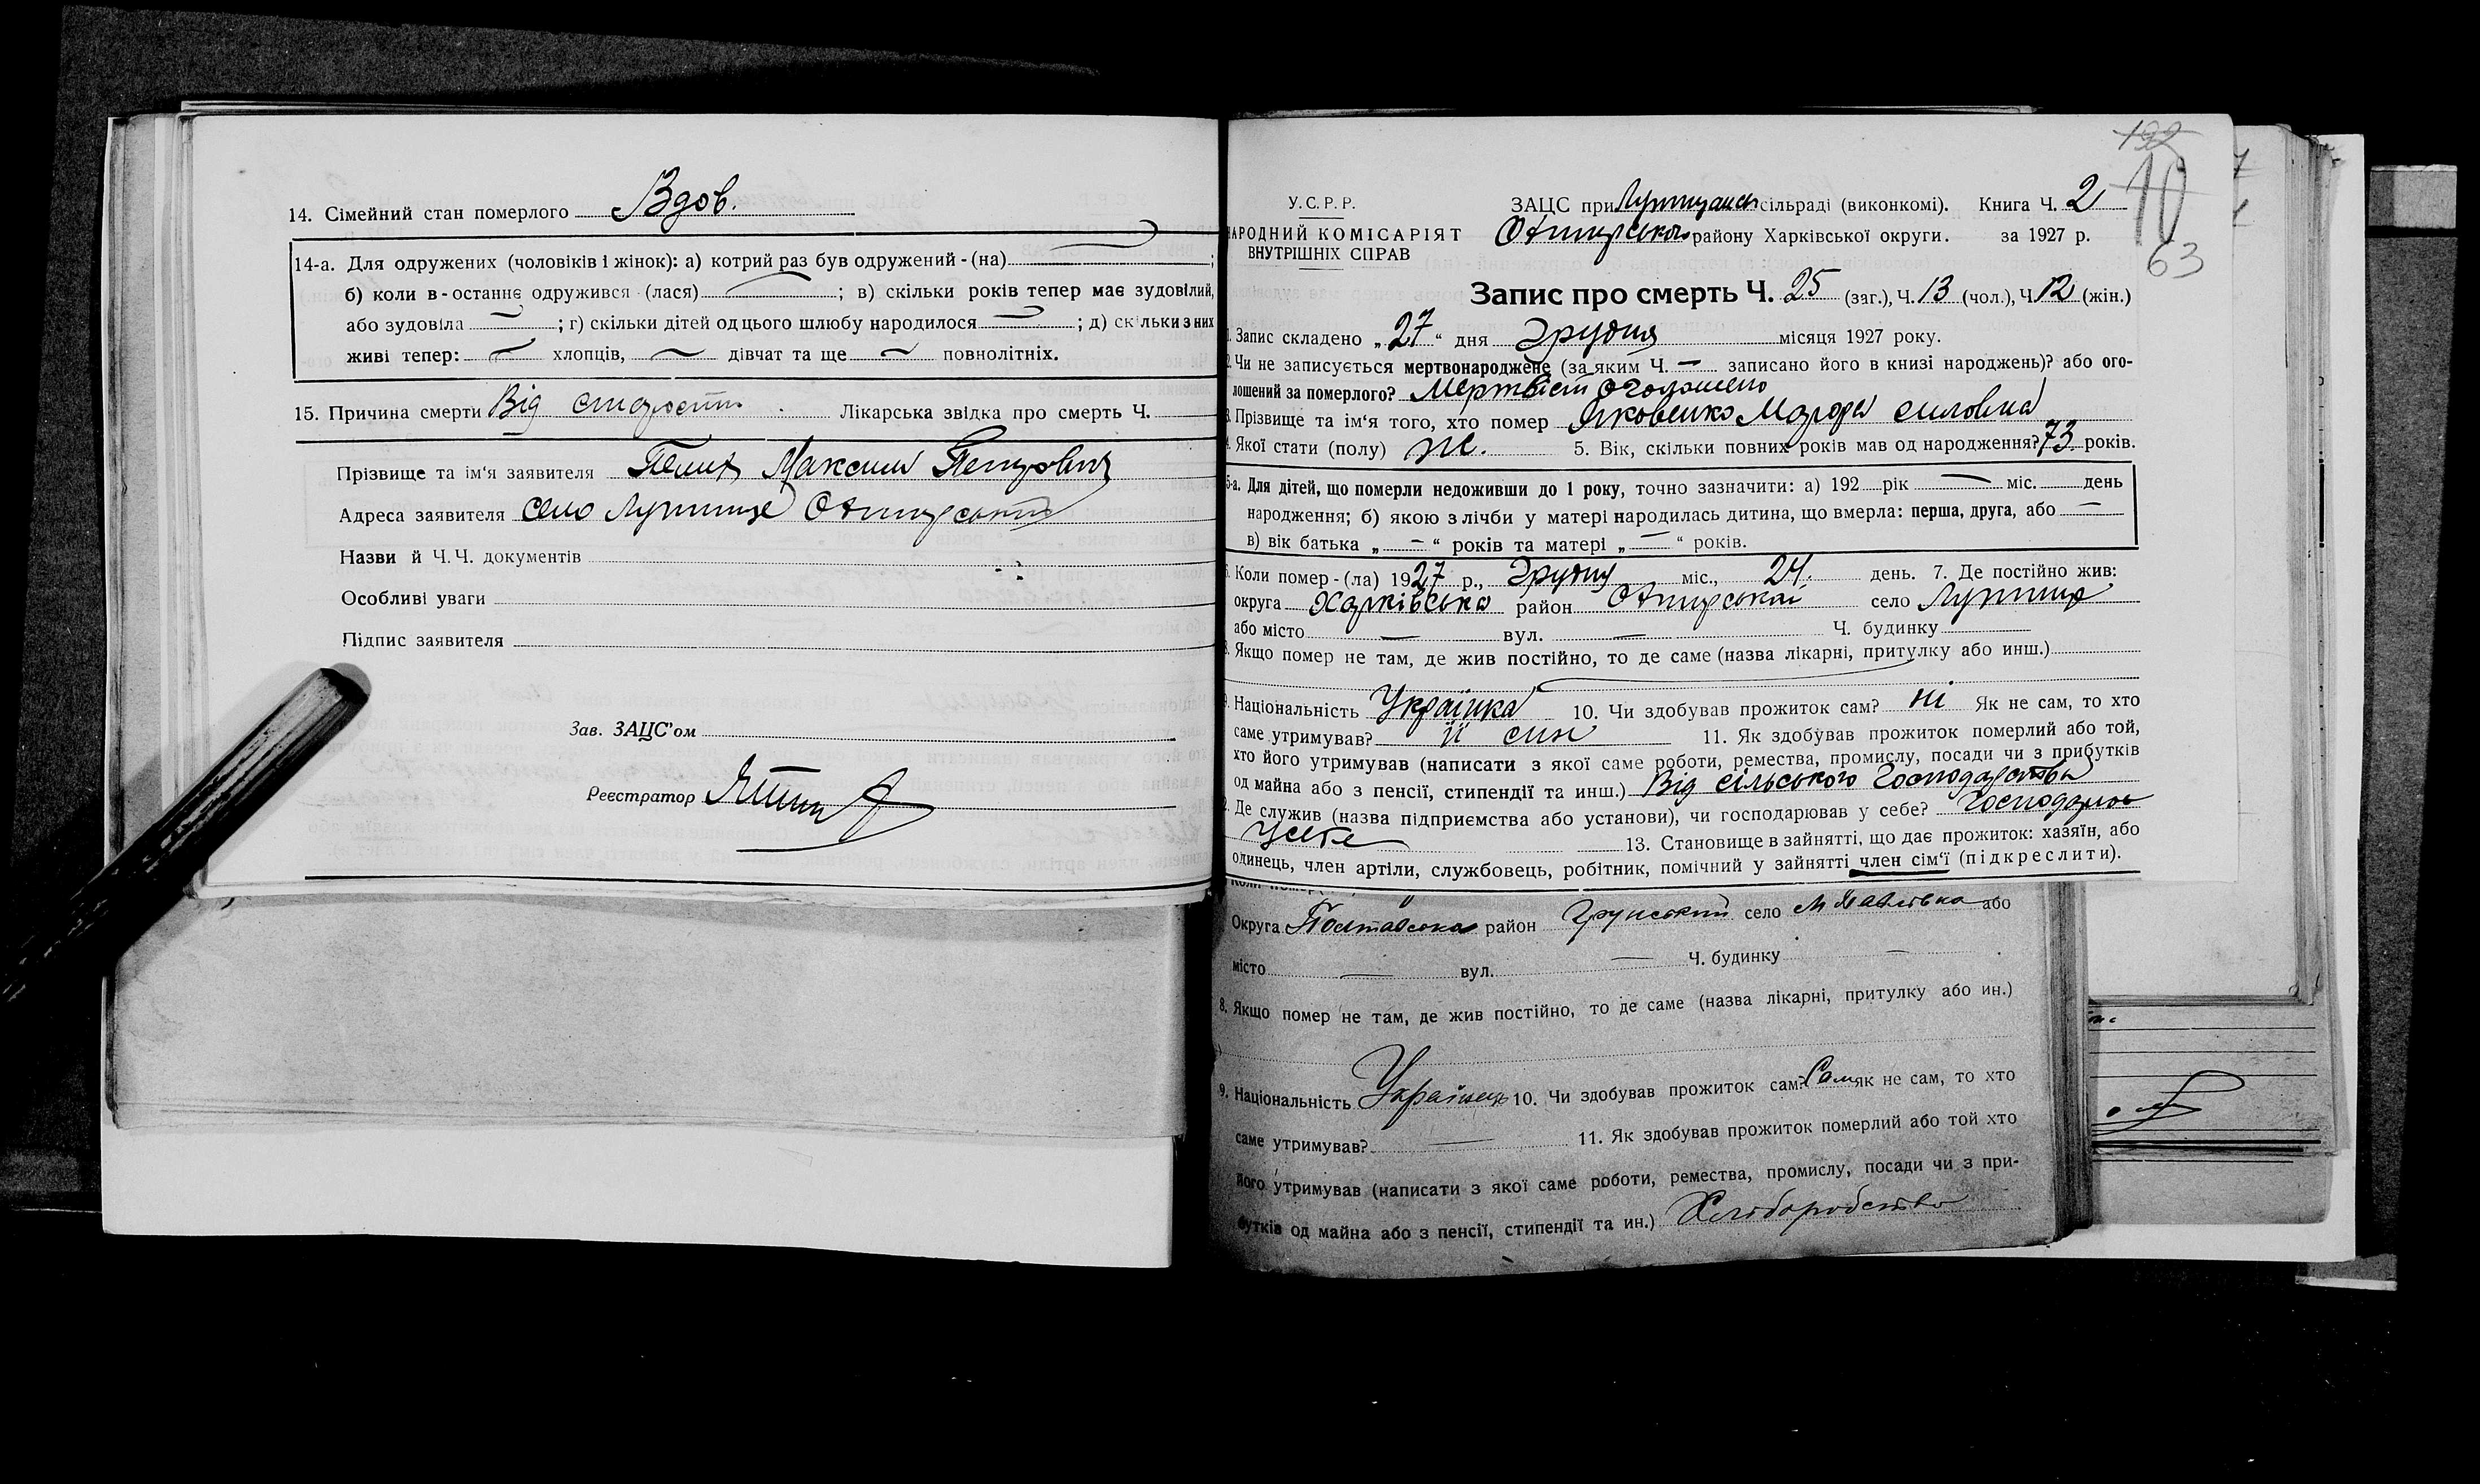 14. Сімейний стан померлого Вдов.
14-а. Для одружених (чоловіків і жінок): а) котрий раз був одружений - (на) ;
б) коли в-останнє одружився (лася) ; в) скільки років тепер має зудовілий,
або зудовіла ; г) скільки дітей од цього шлюбу народилося ; д) скільки з них
живі тепер: хлопців, дівчат та ще повнолітніх.
15. Причина смерти Від старости Лікарська звідка про смерть Ч.
Прізвище та ім'я заявителя Максим Петрович
Адреса заявителя село
Назви й Ч.Ч. документів
Особливі уваги
Підпис заявителя
Зав. ЗАЦС'ом
Реєстратор
132
10
63
У.С.Р.Р.
НАРОДНИЙ КОМІСАРІЯТ
ВНУТРІШНІХ СПРАВ
ЗАЦС при сільраді (виконкомі). Книга Ч. 2
району Харківської округи. за 1927 р.
Запис про смерть Ч. 25 (заг.), Ч. 13 (чол.), Ч. 12 (жін.)
1. Запис складено „27“ дня Грудня місяця 1927 року.
2. Чи не записується мертвонароджене (за яким Ч. — записано його в книзі народжень)? або ого-
лошений за померлого?
3. Прізвище та ім'я того, хто помер Яковенко силовна
4. Якої стати (полу) ж. 5. Вік, скільки повних років мав од народження? 73 років.
5-а. Для дітей, що померли недоживши до 1 року, точно зазначити: а) 192 рік — міс. день
народження; б) якою з лічби у матері народилась дитина, що вмерла: перша, друга, або —
в) вік батька „—“ років та матері „—“ років.
6. Коли помер - (ла) 1927 р., Грудня міс., 24. день. 7. Де постійно жив:
округа Харківська район село
або місто — вул. — Ч. будинку
8. Якщо помер не там, де жив постійно, то де саме (назва лікарні, притулку або инш.)
9. Національність Українка 10. Чи здобував прожиток сам? ні Як не сам, то хто
саме утримував? її син 11. Як здобував прожиток померлий або той,
хто його утримував (написати з якої саме роботи, ремества, промислу, посади чи з прибутків
од майна або з пенсії, стипендії та инш.) Від сільського Господарства
12. Де служив (назва підприємства або установи), чи господарював у себе?
у себе 13. Становище в зайнятті, що дає прожиток: хазяїн, або
одинець, член артілі, службовець, робітник, помічний у зайнятті член сім'ї (підкреслити).
Округа Полтавська район Грунський село або
місто — вул. — Ч. будинку —
8. Якщо помер не там, де жив постійно, то де саме (назва лікарні, притулку або ин.)
9. Національність Українець 10. Чи здобував прожиток сам? Сам як не сам, то хто
саме утримував? — 11. Як здобував прожиток померлий або той хто
його утримував (написати з якої саме роботи, ремества, промислу, посади чи з при-
бутків од майна або з пенсії, стипендії та ин.) Хліборобство